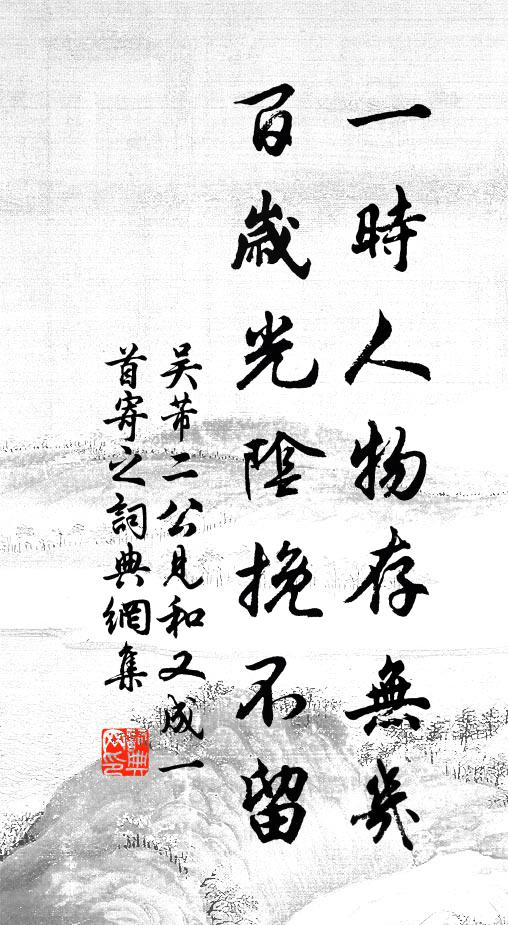 一時人物存無幾
百歲光陰挽不留
吴芾二公見和又成一
首寄之詞典網集